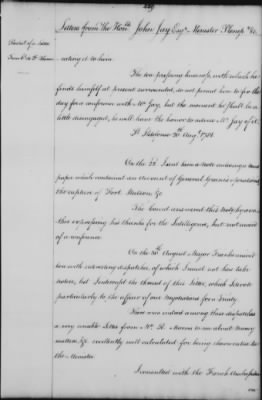 Letters from The Hon. John Jay Esq. Minister Plenip. &c.
Receit of a Letter
from
noting it to him.
The too pressing business, with which he
finds himself at present surrounded, do not permit him to fix the
day for a conference with Mr. Jay, but the moment he shall be a
little disengaged, he will have the honor to advise Mr. Jay of it.
St. Ildefonso Augt. 1781.
On the I sent him a Note enclosing a
paper which contained an account of General Greene's operations,
the capture of Fort Watson &c.
The Count answered this Note by
expressing his thanks for the Intelligence, but not a word
of a conference.
On the August Major Franks
with interesting dispatches, of which I must not here take
notice, lest I interrupt the thread of this Letter, which I devote
particularly to the affair of our Negotiations for a Treaty.
There was indeed among these dispatches
a very sensible Letter from Mr. R. Morris to me about Money
matters, &c. excellently well calculated for being shown entire to
the Minister.
I consulted with the French Ambassador